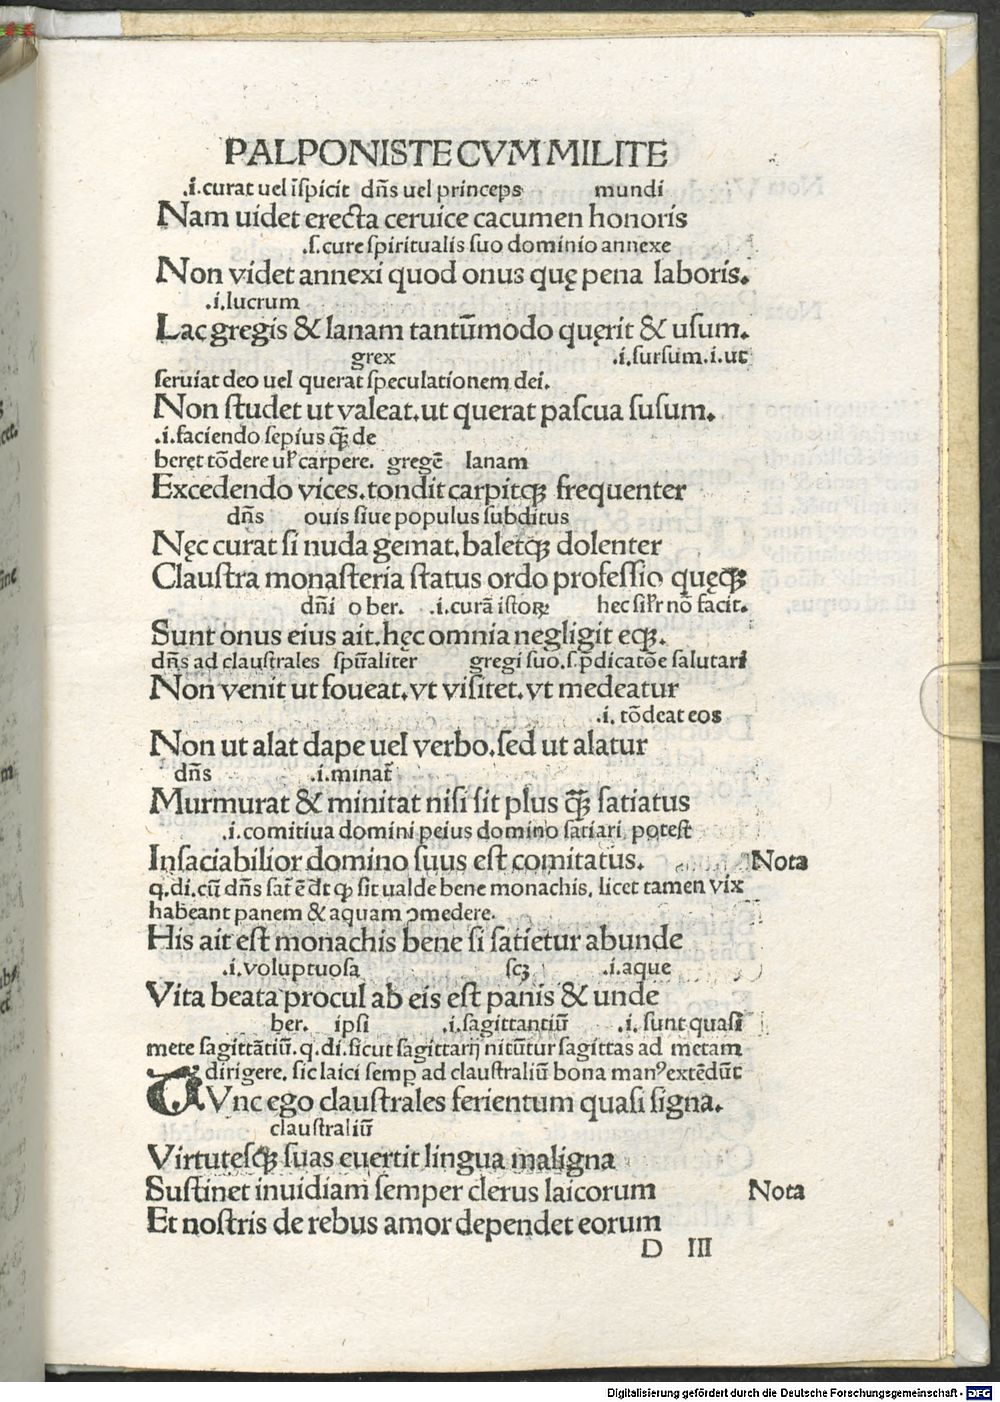 PALPONISTE CVM MILITE
.i.curat uel īſpicit dn̄s uel princeps mundi
Nam uidet erecta ceruice cacumen honoris
.ſ.cure ſpiritualis ſuo dominio annexe
Non videt annexi quod onus quę pena laboris.
.i.lucrum
Lac gregis & lanam tantūmodo quęrit & uſum.
grex .i.ſurſum.i.ut
ſeruiat deo uel querat ſpeculationem dei.
Non ſtudet ut valeat.ut querat paſcua ſuſum.
.i.faciendo ſepius q̄ꝫ de
beret tōdere ul̕ carpere. gregē lanam
Excedendo vices.tondit carpitqꝫ frequenter
dn̄s ouis ſiue populus ſubditus
Nęc curat ſi nuda gemat.baletqꝫ dolenter
Clauſtra monaſteria ſtatus ordo profeſſio quęqꝫ
dn̄i o ber. .i.curā iſtoꝝ hec ſil̕r nō facit.
Sunt onus eius ait.hęc omnia negligit eqꝫ.
dn̄s ad clauſtrales ſpūaliter gregi ſuo.ſ.p̄dicatōe ſalutari
Non venit ut foueat.vt viſitet.vt medeatur
.i. tōdeat eos
Non ut alat dape uel verbo.ſed ut alatur
dn̄s .i.minat̄
Murmurat & minitat niſi ſit plus q̄ꝫ ſatiatus
.i.comitiua domini peius domino ſatiari poteſt
Inſaciabilior domino ſuus eſt comitatus. Nota
q.di.cū dn̄s ſat̄ ē dt̄ qꝫ ſit ualde bene monachis, licet tamen vix
habeant panem & aquam ↄmedere.
His ait eſt monachis bene ſi ſatietur abunde
.i.voluptuoſa ſcꝫ .i.aque
Vita beata procul ab eis eſt panis & unde
ber. ipſi .i.ſagittantiū .i. ſunt quaſi
mete ſagittātiū.q.di.ſicut ſagittarij nitūtur ſagittas ad metam
dirigere, ſic laici ſemꝑ ad clauſtraliū bona manꝰ extēdūt
TVnc ego clauſtrales ferientum quaſi ſigna.
clauſtraliū
Virtuteſqꝫ ſuas euertit lingua maligna
Suſtinet inuidiam ſemper clerus laicorum Nota
Et noſtris de rebus amor dependet eorum
D III
Digitalisierung gefördert durch die Deutsche Forschungsgemeinschaft - DFG